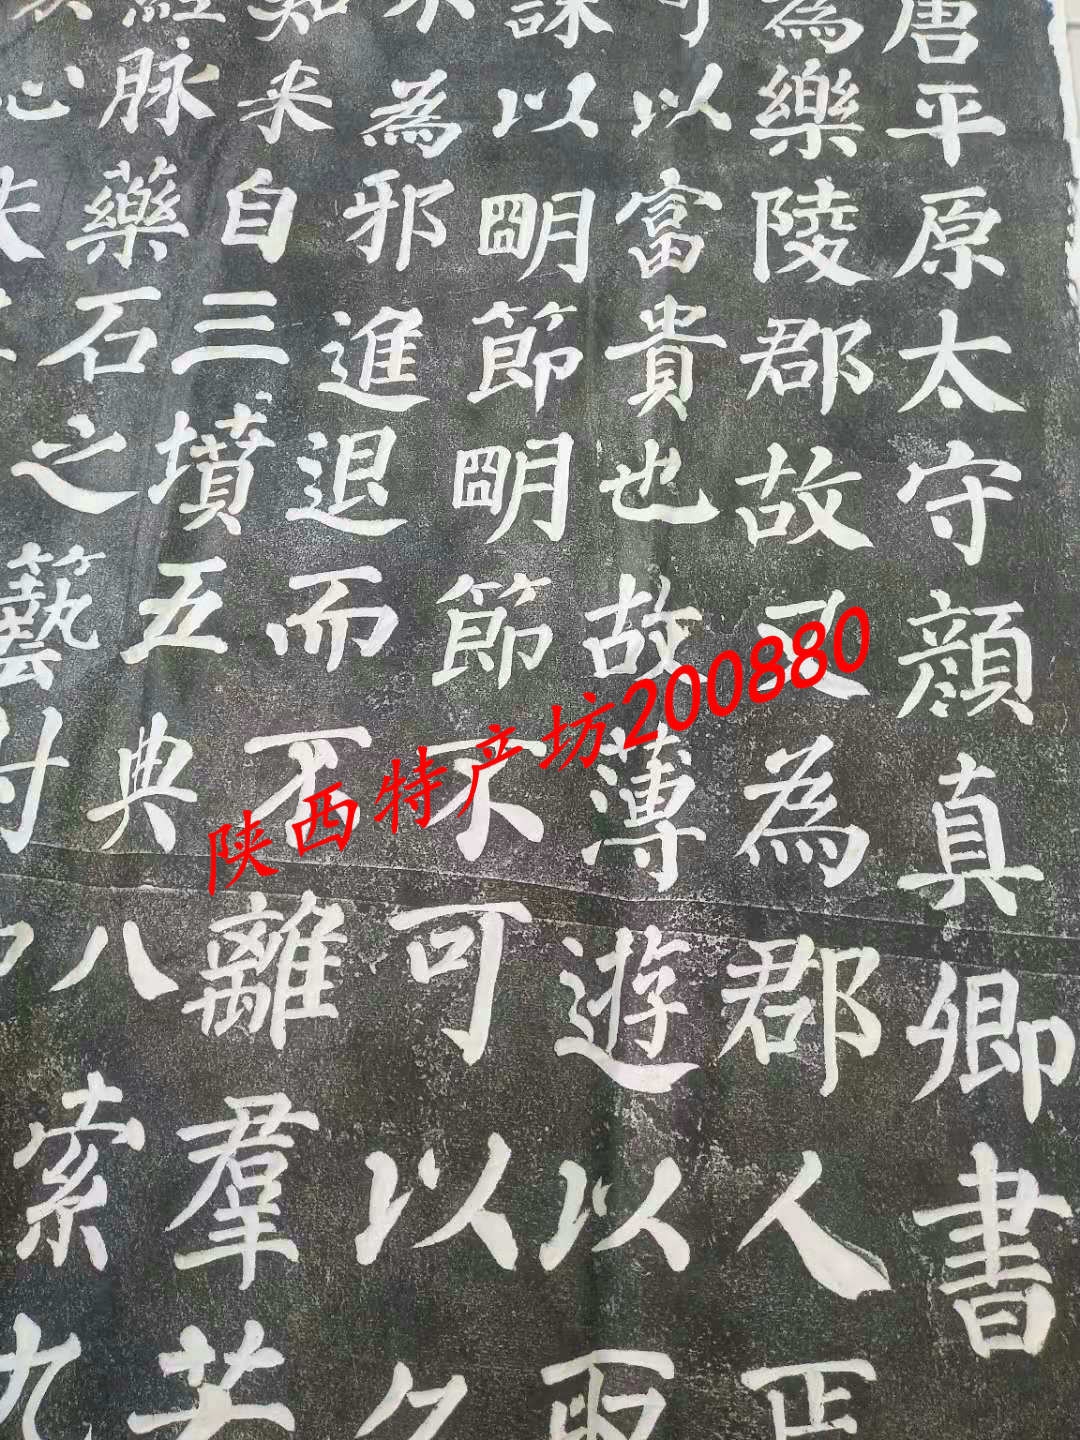 唐平原太守顏真卿書
為樂陵郡故又為郡人
可以富貴也故薄遊以取
詠以朙節朙節不可以久
不為邪進退而不離羣若
知来自三墳五典八索九
經脉藥石之藝射
心夫
陕西特产坊200880